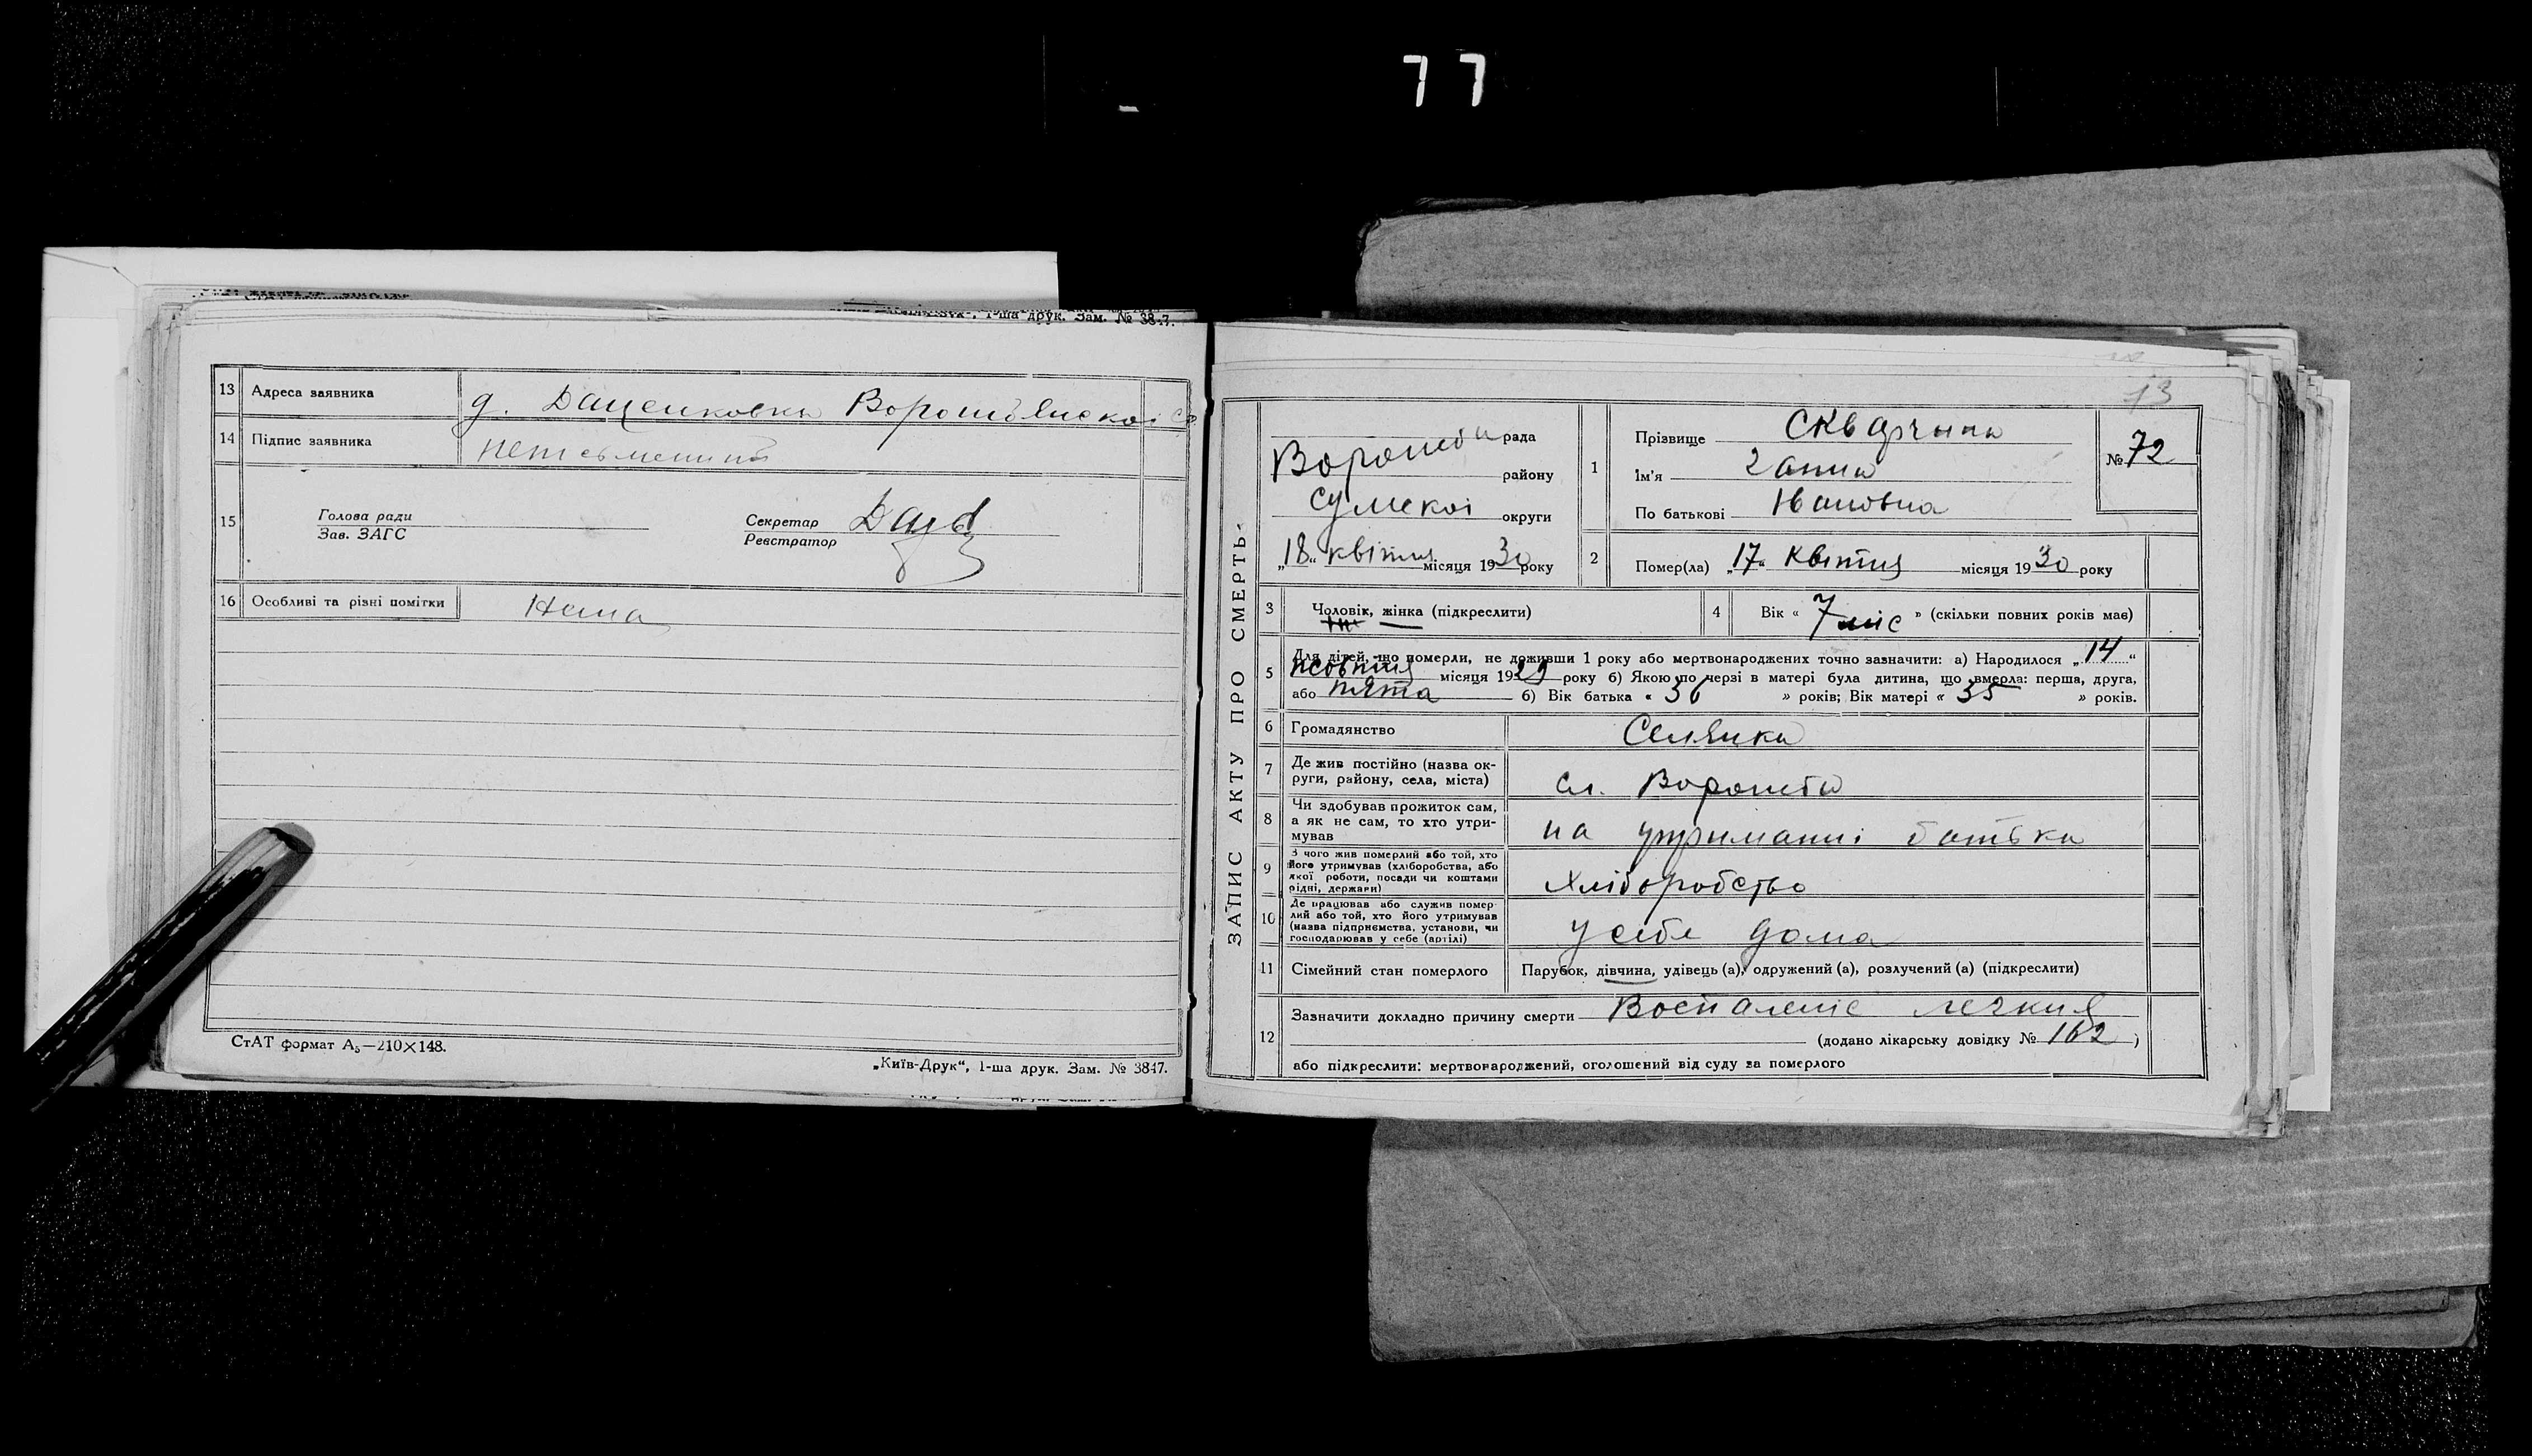 77
1-ша друк. Зам. № 3847.
13 Адреса заявника д. Даценковка Ворожбянскоі
14 Підпис заявника неписьменний
15 Голова ради
Зав. ЗАГС
Секретар
Реєстратор
16 Особливі та різні помітки Нема
СтАТ формат А₅—210×148.
„Київ-Друк“, 1-ша друк. Зам. № 3847.
13
ЗАПИС АКТУ ПРО СМЕРТЬ.
рада
району
Сумскоі округи
„18“ квітня місяця 1930 року
1 Прізвище
Ім'я Ганна
По батькові Ивановна
№ 72
2 Помер(ла) „17“ Квітня місяця 1930 року
3 Чоловік, жінка (підкреслити)
4 Вік « 7 міс » (скільки повних років має)
5 Для дітей, що померли, не доживши 1 року або мертвонароджених точно зазначити: а) Народилося „14“
жовтня місяця 1929 року б) Якою по черзі в матері була дитина, що вмерла: перша, друга,
або пята б) Вік батька « 36 » років; Вік матері « 35 » років.
6 Громадянство Селянка
7 Де жив постійно (назва округи, району, села, міста) сл. Ворожба
8 Чи здобував прожиток сам,
а як не сам, то хто утримував
на утриманні батька
9 З чого жив померлий або той, хто
його утримував (хліборобства, або
якої роботи, посади чи коштами
рідні, держави)
Хліборобство
10 Де працював або служив померлий або той, хто його утримував
(назва підприємства, установи, чи
господарював у себе (артілі)
У себе дома
11 Сімейний стан померлого Парубок, дівчина, удівець (а), одружений (а), розлучений (а) (підкреслити)
12 Зазначити докладно причину смерти Воспаленіє легкия
(додано лікарську довідку № 162)
або підкреслити: мертвонароджений, оголошений від суду за померлого